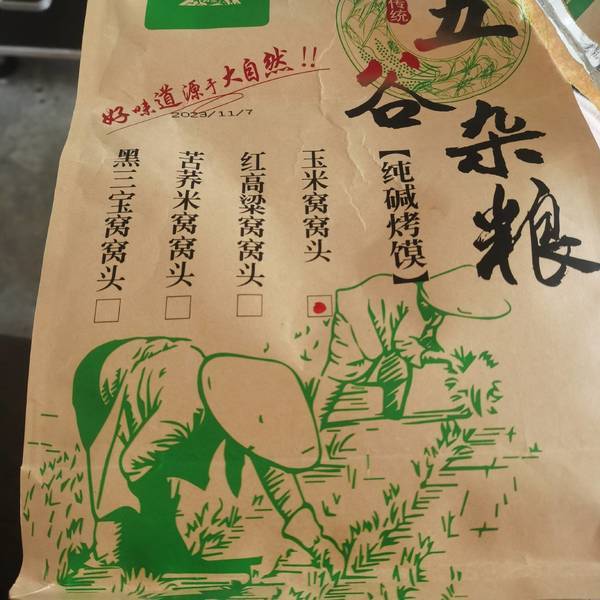 传统
五谷杂粮
【纯碱烤馍】
好味道源于大自然!!
2023/11/7
玉米窝窝头
红高粱窝窝头
苦荞米窝窝头
黑三宝窝窝头